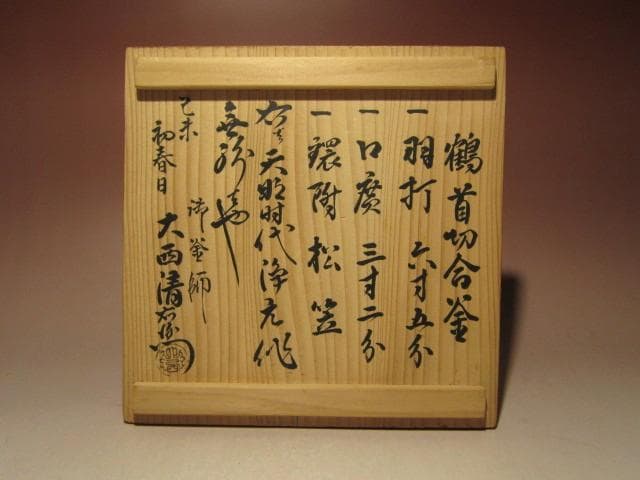 鶴首切合釜
一羽打 六寸五分
一口廣 三寸二分
一環附 松笠
右者天明時代浄元作
無紛者也
己未
初春日
御釜師
大西清右衛門